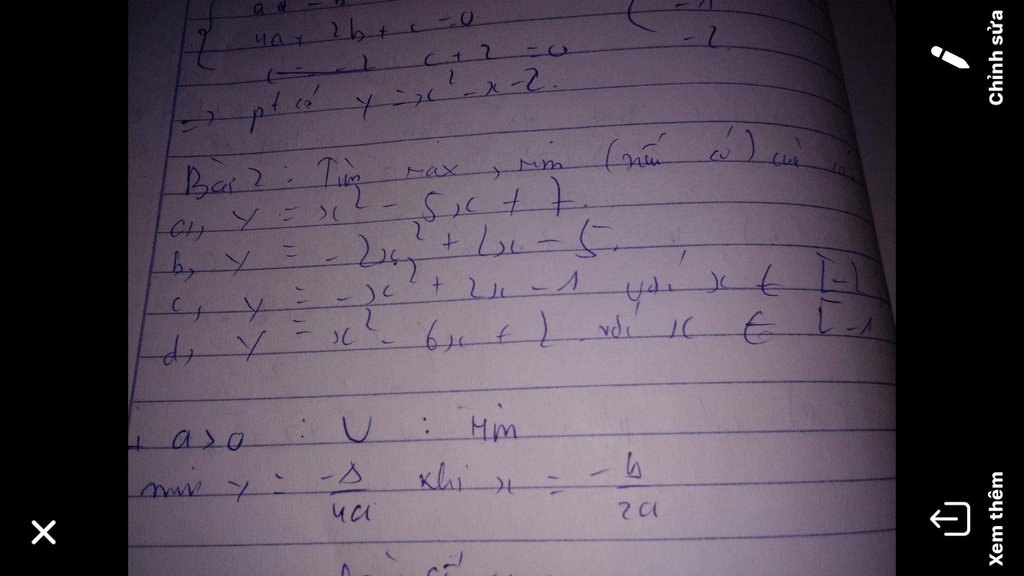 4a + 2b + c = 0
c + 2 = 0
- 2
=> pt có y = x² - x - 2.
Bài 2 : Tìm max, min (nếu có) của
a, y = x² - 5x + 7.
b, y = - 2x² + 2x - 5.
c, y = - x² + 2x - 1 với x ∈ [-2
d, y = x² - 6x + 2 với x ∈ [-1
+ a > 0 : U : Min
min y = -Δ/4a khi x = -b/2a
Chỉnh sửa
Xem thêm